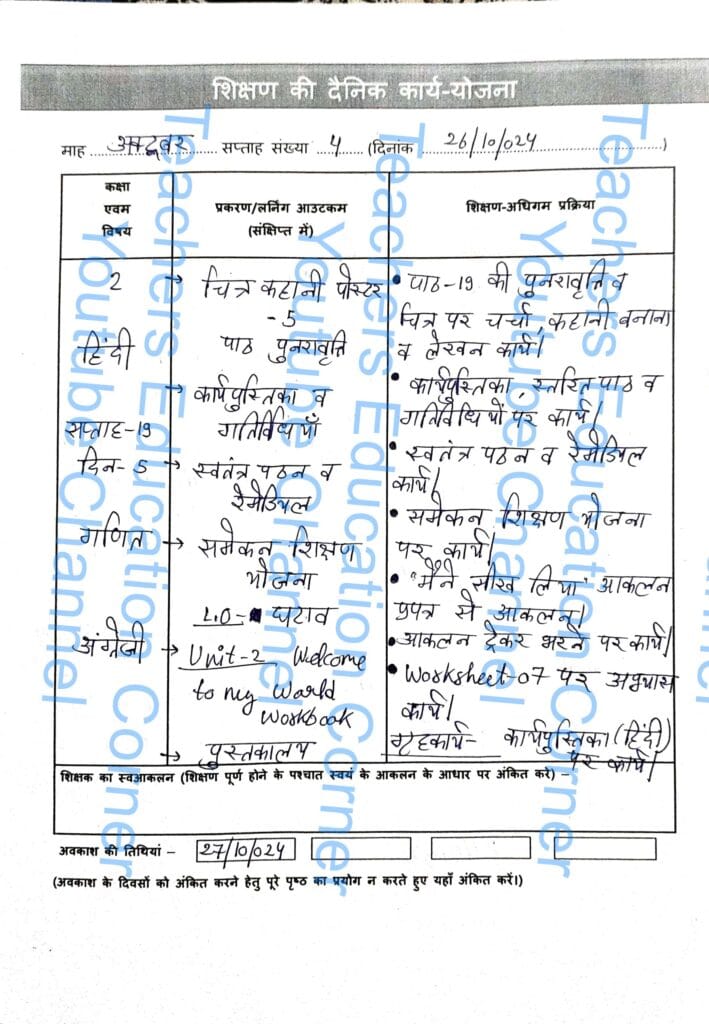 शिक्षण की दैनिक कार्य-योजना
माह अक्टूबर सप्ताह संख्या 4 (दिनांक 26/10/024)
कक्षा
एवम
विषय
प्रकरण/लर्निंग आउटकम
(संक्षिप्त में)
शिक्षण-अधिगम प्रक्रिया
2
हिंदी
सप्ताह-19
दिन-5
गणित
अंग्रेजी
→ चित्र कहानी पोस्टर
-5
पाठ पुनरावृत्ति
→ कार्यपुस्तिका व
गतिविधियाँ
→ स्वतंत्र पठन व
रेमेडियल
→ समेकन शिक्षण
योजना
L.O- घटाव
→ Unit-2 Welcome
to my World
Workbook
→ पुस्तकालय
• पाठ-19 की पुनरावृत्ति व
चित्र पर चर्चा, कहानी बनाना
व लेखन कार्य।
• कार्यपुस्तिका, स्तरित पाठ व
गतिविधियों पर कार्य।
• स्वतंत्र पठन व रेमेडियल
कार्य।
• समेकन शिक्षण योजना
पर कार्य।
• "मैंने सीख लिया" आकलन
प्रपत्र से आकलन।
• आकलन ट्रैकर भरने पर कार्य।
• Worksheet-07 पर अभ्यास
कार्य।
गृहकार्य- कार्यपुस्तिका (हिंदी)
पर कार्य।
शिक्षक का स्वआकलन (शिक्षण पूर्ण होने के पश्चात स्वयं के आकलन के आधार पर अंकित करे) –
अवकाश की तिथियां – 27/10/024
(अवकाश के दिवसों को अंकित करने हेतु पूरे पृष्ठ का प्रयोग न करते हुए यहाँ अंकित करें।)
Teachers Education Corner
Youtube Channel
Teachers Education Corner
Youtube Channel
Teachers Education Corner
Youtube Channel